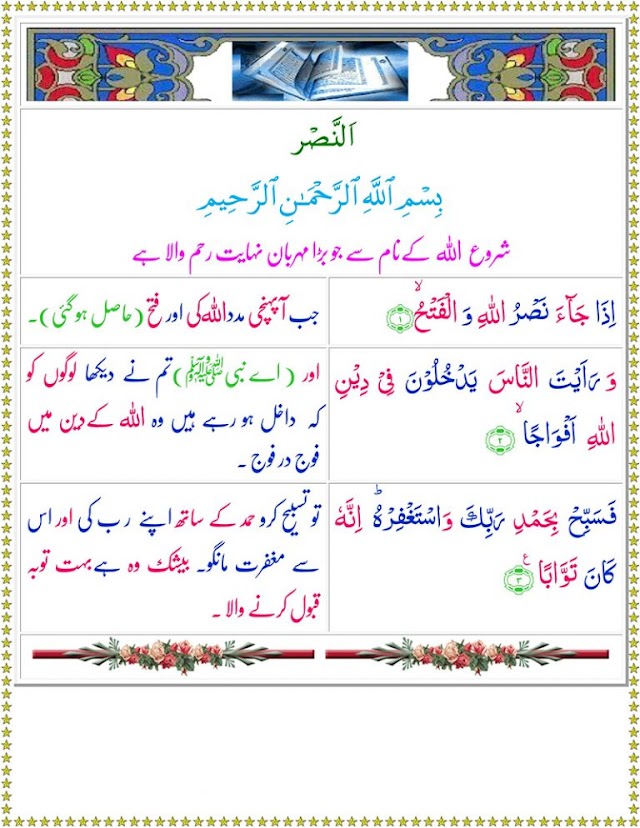 اَلنَّصْر
بِسْمِ ٱللَّهِ ٱلرَّحْمَـٰنِ ٱلرَّحِيمِ
شروع اللہ کے نام سے جو بڑا مہربان نہایت رحم والا ہے
اِذَا جَآءَ نَصْرُ اللّٰهِ وَ الْفَتْحُۙ ۝۱
جب آپہنچی مدد اللہ کی اور فتح (حاصل ہو گئی)۔
وَ رَاَيْتَ النَّاسَ يَدْخُلُوْنَ فِىْ دِيْنِ
اللّٰهِ اَفْوَاجًاۙ ۝۲
اور (اے نبی ﷺ) تم نے دیکھا لوگوں کو
کہ داخل ہو رہے ہیں وہ اللہ کے دین میں
فوج در فوج۔
فَسَبِّحْ بِحَمْدِ رَبِّكَ وَاسْتَغْفِرْهُ ؕ اِنَّهٗ
كَانَ تَوَّابًا ۝۳ ع
تو تسبیح کرو حمد کے ساتھ اپنے رب کی اور اس
سے مغفرت مانگو۔ بیشک وہ ہے بہت توبہ
قبول کرنے والا۔